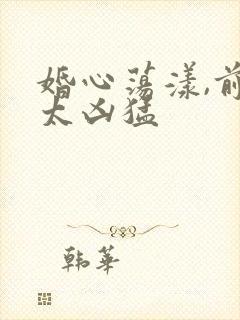 婚心荡漾,前
太凶猛
韩华